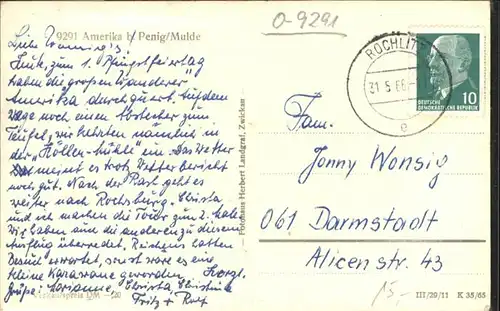 O-9291
9291 Amerika b/ Penig/Mulde
Liebe
Heute, zum 1. Pfingstfeiertag
haben die großen Wanderer
Amerika durchquert. Auf dem
Wege noch einen Abstecher zum
Teufel, wir kehrten nämlich in
der „Höllen-Mühle" ein. Das Wetter
meint es trotz Wetterbericht
noch gut. Nach der Rast geht es
weiter nach Rochsburg. Christa
und ich machen die Tour zum 2. Male.
Wir haben nun die anderen zu diesem
Ausflug überredet. Reichens hatten
Besuch erwartet, sonst wäre es eine
kleine Karawane geworden. Herzl.
Grüße: Marianne, Christa, Christine
Fritz + Rolf
Photohaus Herbert Landgraf, Zwickau
ROCHLITZ
31.5.66
e
DEUTSCHE
DEMOKRATISCHE REPUBLIK
10
Fam.
Jonny Wonsig
061 Darmstadt
Alicenstr. 43
15,-
III/29/11 K 35/65